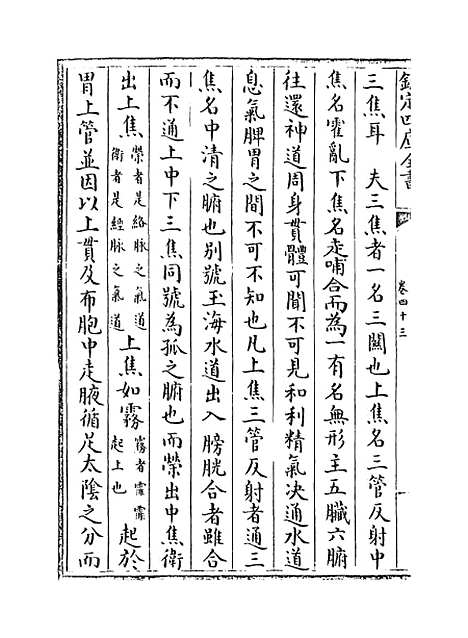 欽定四庫全書
卷四十三
三焦耳　夫三焦者一名三關也上焦名三管反射中
焦名霍亂下焦名走哺合而為一有名無形主五臟六腑
往還神道周身貫體可聞不可見和利精氣決通水道
息氣脾胃之間不可不知也凡上焦三管反射者通三
焦名中清之腑也别號玉海水道出入膀胱合者雖合
而不通上中下三焦同號為孤之腑也而榮出中焦衛
出上焦榮者是絡脉之氣道衛者是經脉之氣道上焦如霧霧者霏霏起上也起於
胃上管並因以上貫及布胞中走腋循足太陰之分而